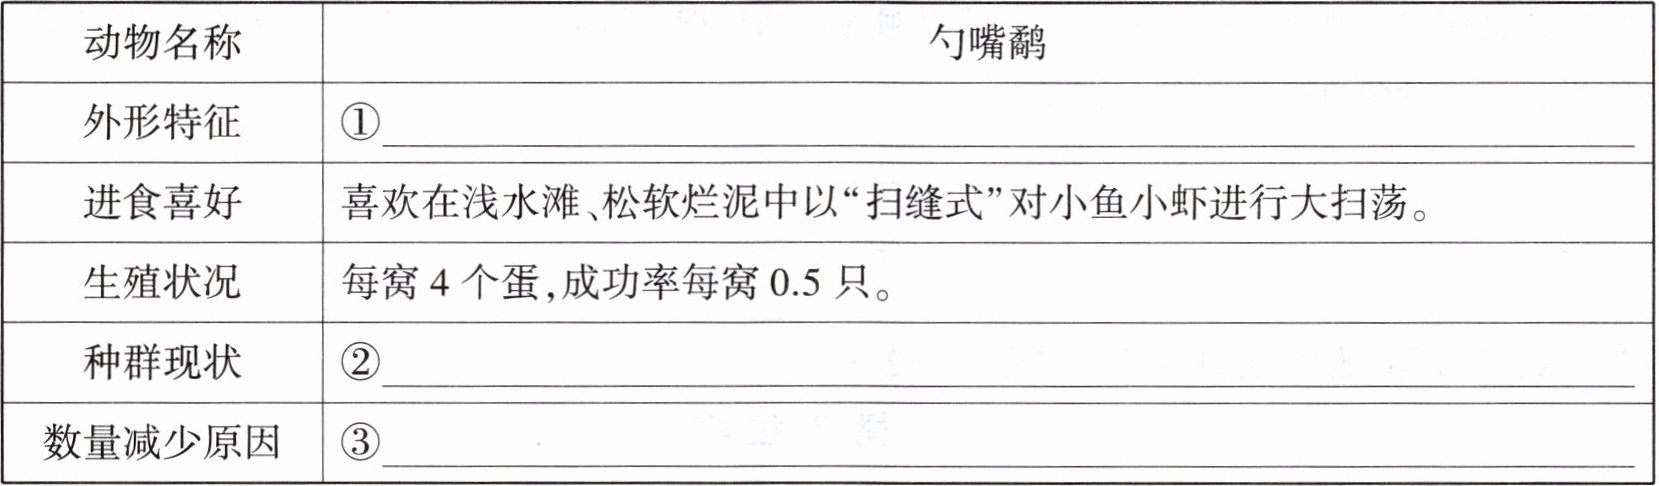 动物名称 勺嘴鹬
外形特征 ①
进食喜好 喜欢在浅水滩、松软烂泥中以“扫缝式”对小鱼小虾进行大扫荡。
生殖状况 每窝 4 个蛋,成功率每窝 0.5 只。
种群现状 ②
数量减少原因 ③